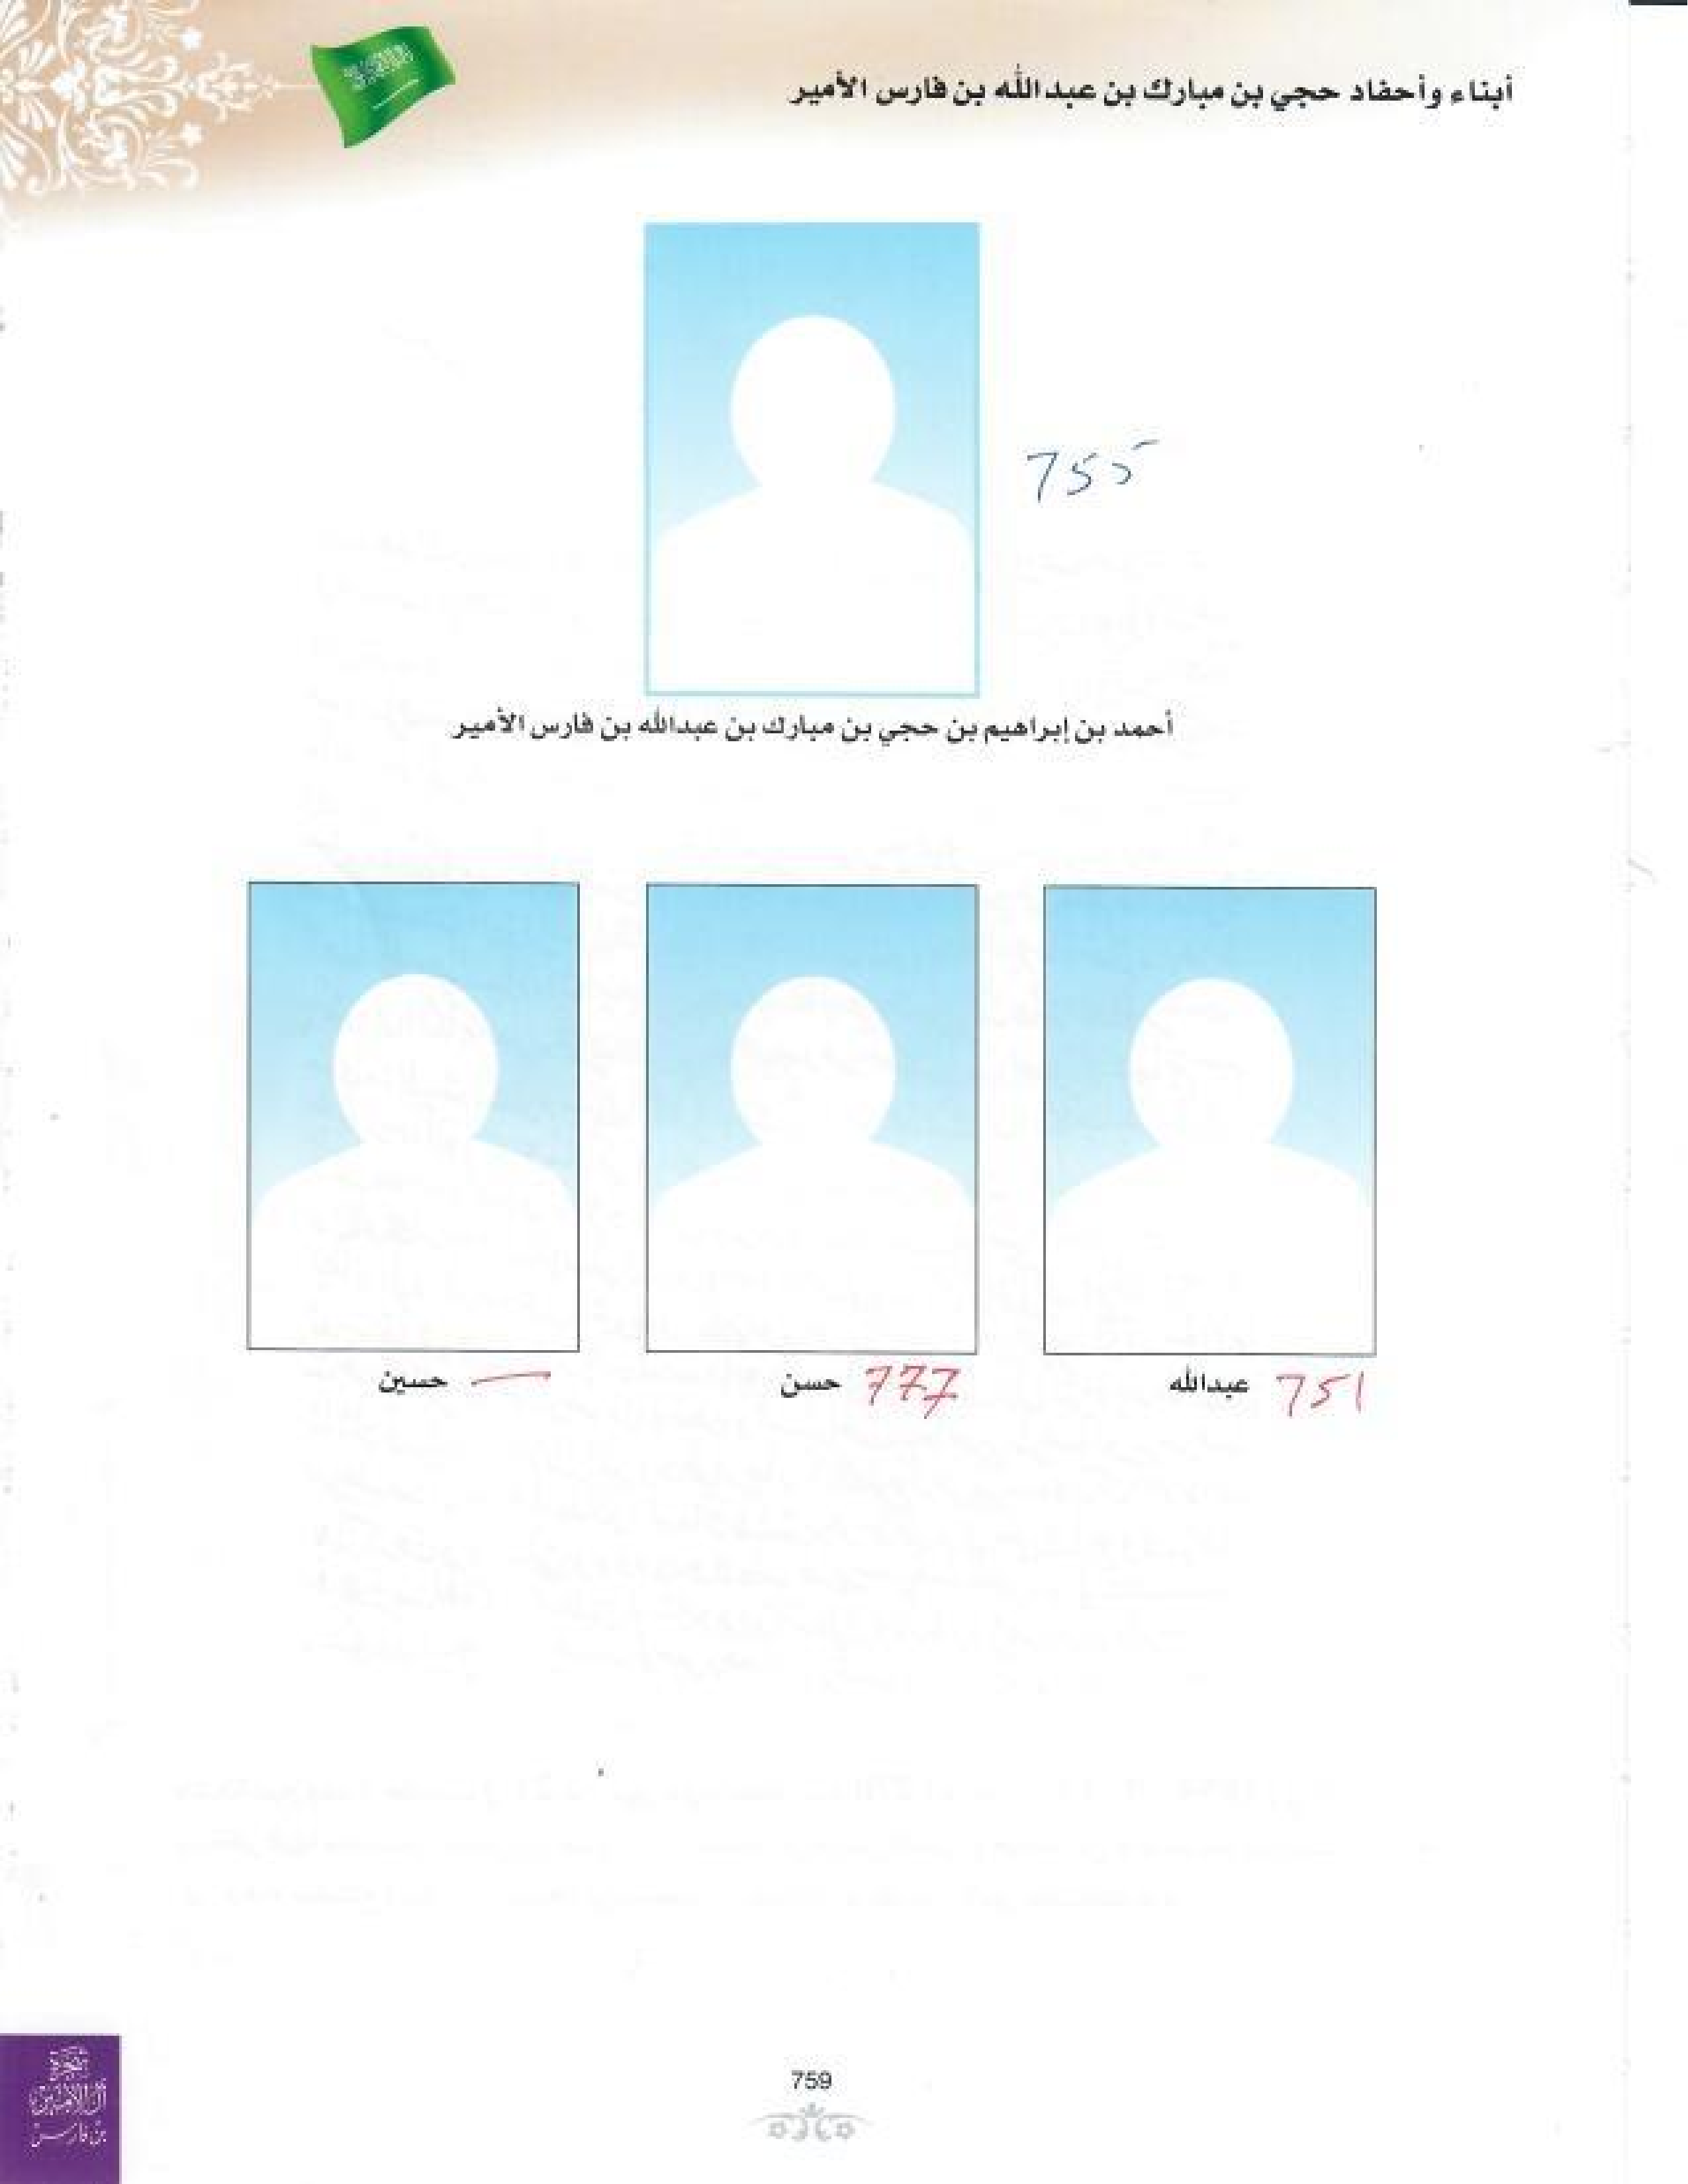 أبناء وأحفاد حجي بن مبارك بن عبد الله بن فارس الأمير
755
أحمد بن إبراهيم بن حجي بن مبارك بن عبدالله بن فارس الأمير
751 عبدالله
777 حسن
حسين
759
شجرة
آل الأمير
بن فارس